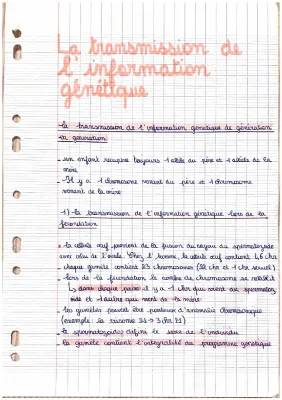 La transmission de
l'information
génétique
la transmission de l'information génétique de génération
en génération
- un enfant récupère toujours 1 allèle du père et 1 allèle de la
mère
- Il y a 1 chromosome venant du père et 1 chromosome
venant de la mère
1) la transmission de l'information génétique lors de la
fécondation
la cellule œuf provient de la fusion du noyau du spermatozoïde
avec celui de l'ovule. Chez l'homme, la cellule œuf contient 46 chr
chaque gamète contient 23 chromosomes (22 chr et 1 chr sexuel)
lors de la fécondation, le nombre de chromosome se rétablit
↳ dans chaque paire il y a 1 chr qui vient du spermatozo
ïde et l'autre qui vient de la mère.
les gamètes peuvent être porteur d'anomalie chromosomique
(exemple : la trisomie 21 → 3 chr 21)
le spermatozoïde définit le sexe de l'individu
la gamète contient l'intégralité du programme génétique